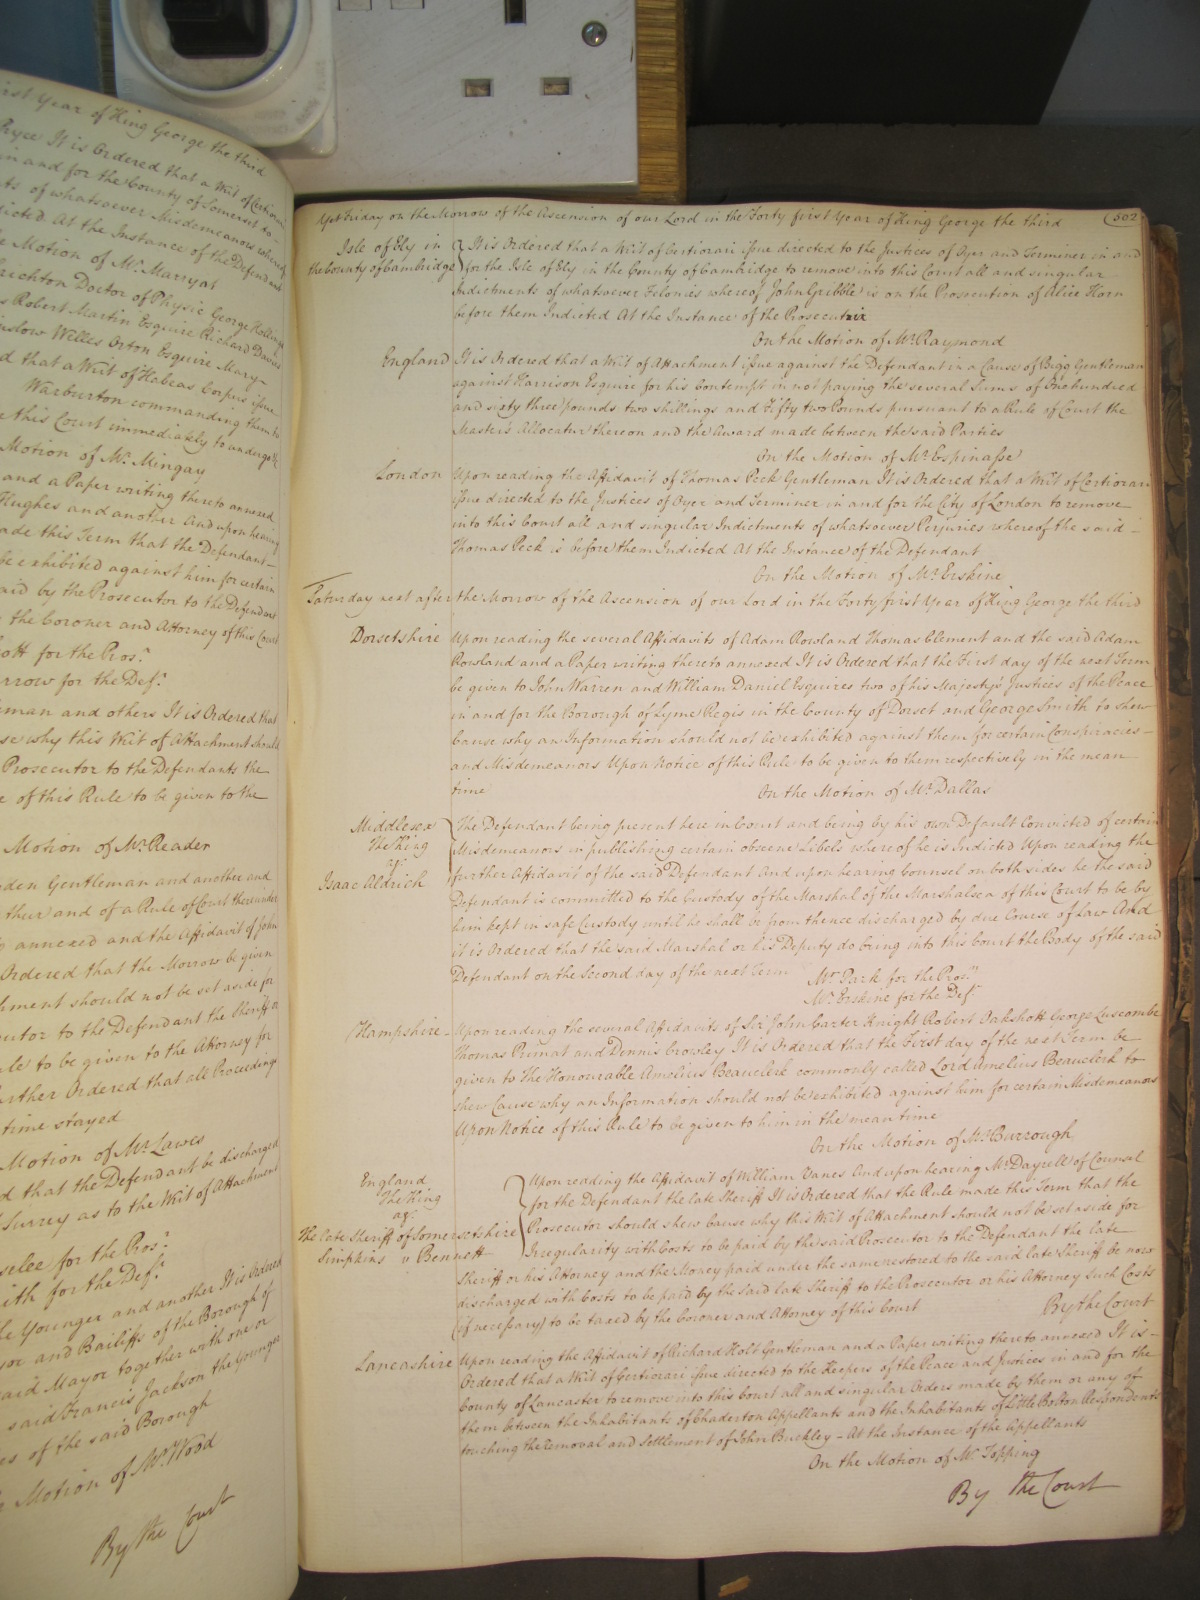 irst Year of King George the third
Pryce It is Ordered that a Writ of Certiorari
in and for the County of Somerset to
ts of whatsoever Misdemeanors whereof
dicted. At the Instance of the Defendant
e Motion of Mr. Marryat
richton Doctor of Physic George Hollings
s Robert Martin Esquire Richard Davies
nslow Welles Orton Esquire Mary
d that a Writ of Habeas Corpus issue
Warburton commanding them to
this Court immediately to undergo &c
Motion of Mr. Mingay
and a Paper writing thereto annexed
Hughes and another And upon hearing
ade this Term that the Defendant
be exhibited against him for certain
aid by the Prosecutor to the Defendant
the Coroner and Attorney of this Court
ott for the Pros:r
rrow for the Def:t
eman and others It is Ordered that
se why this Writ of Attachment should
Prosecutor to the Defendants the
e of this Rule to be given to the
Motion of Mr. Reader
den Gentleman and another and
thur and of a Rule of Court thereunder
annexed and the Affidavit of John
Ordered that the Morrow be given
hment should not be set aside for
cutor to the Defendant the Sheriff or
ule to be given to the Attorney for
urther Ordered that all Proceedings
time stayed
Motion of Mr. Lawes
d that the Defendant be discharged
Surrey as to the Writ of Attachment
selee for the Pros:r
ith for the Def:t
he Younger and another It is Ordered
yor and Bailiffs of the Borough of
said Mayor together with one or
said Francis Jackson the Younger
es of the said Borough
Motion of Mr. Wood
By the Court
Yet Friday on the Morrow of the Ascension of our Lord in the Forty first Year of King George the third 502
Isle of Ely in the County of Cambridge It is Ordered that a Writ of Certiorari issue directed to the Justices of Oyer and Terminer in and
for the Isle of Ely in the County of Cambridge to remove into this Court all and singular
Indictments of whatsoever Felonies whereof John Gribble is on the Prosecution of Alice Horn
before them Indicted At the Instance of the Prosecutrix
On the Motion of Mr. Raymond
England It is Ordered that a Writ of Attachment issue against the Defendant in a Cause of Bigg Gentleman
against Harrison Esquire for his Contempt in not paying the several Sums of One hundred
and sixty three pounds two shillings and Fifty two Pounds pursuant to a Rule of Court the
Master's Allocatur thereon and the Award made between the said Parties
On the Motion of Mr. Espinasse
London Upon reading the Affidavit of Thomas Peck Gentleman It is Ordered that a Writ of Certiorari
issue directed to the Justices of Oyer and Terminer in and for the City of London to remove
into this Court all and singular Indictments of whatsoever Perjuries whereof the said
Thomas Peck is before them Indicted At the Instance of the Defendant
On the Motion of Mr. Erskine
Saturday next after the Morrow of the Ascension of our Lord in the Forty first Year of King George the third
Dorsetshire Upon reading the several Affidavits of Adam Rowland Thomas Clement and the said Adam
Rowland and a Paper writing thereto annexed It is Ordered that the First day of the next Term
be given to John Warren and William Daniel Esquires two of his Majesty's Justices of the Peace
in and for the Borough of Lyme Regis in the County of Dorset and George Smith to shew
Cause why an Information should not be exhibited against them for certain Conspiracies
and Misdemeanors Upon Notice of this Rule to be given to them respectively in the mean
time On the Motion of Mr. Dallas
Middlesex
The King
agt.
Isaac Aldrich
The Defendant being present here in Court and being by his own Default Convicted of certain
Misdemeanors in publishing certain obscene Libels whereof he is Indicted Upon reading the
further Affidavit of the said Defendant And upon hearing Counsel on both sides he the said
Defendant is committed to the Custody of the Marshal of the Marshalsea of this Court to be by
him kept in safe Custody until he shall be from thence discharged by due Course of Law And
it is Ordered that the said Marshal or his Deputy do bring into this Court the Body of the said
Defendant on the Second day of the next Term Mr. Park for the Pros:r
Mr. Erskine for the Def:t
Hampshire Upon reading the several Affidavits of Sir John Carter Knight Robert Oakshott George Luscombe
Thomas Primat and Dennis Crowley It is Ordered that the First day of the next Term be
given to The Honourable Amelius Beauclerk commonly called Lord Amelius Beauclerk to
shew Cause why an Information should not be exhibited against him for certain Misdemeanors
Upon Notice of this Rule to be given to him in the mean time
On the Motion of Mr. Burrough
England
The King
agt.
The late Sheriff of Somersetshire
Simpkins v Bennett
Upon reading the Affidavit of William Vanes And upon hearing Mr. Dayrell of Counsel
for the Defendant the late Sheriff It is Ordered that the Rule made this Term that the
Prosecutor should shew Cause why this Writ of Attachment should not be set aside for
Irregularity with Costs to be paid by the said Prosecutor to the Defendant the late
Sheriff or his Attorney and the Money paid under the same restored to the said late Sheriff be now
discharged with Costs to be paid by the said late Sheriff to the Prosecutor or his Attorney such Costs
(if necessary) to be taxed by the Coroner and Attorney of this Court By the Court
Lancashire Upon reading the Affidavit of Richard Holt Gentleman and a Paper writing thereto annexed It is
Ordered that a Writ of Certiorari issue directed to the Keepers of the Peace and Justices in and for the
County of Lancaster to remove into this Court all and singular Orders made by them or any of
them between the Inhabitants of Chaderton Appellants and the Inhabitants of Little Bolton Respondents
touching the removal and Settlement of John Buckley - At the Instance of the Appellants
On the Motion of Mr. Topping
By the Court